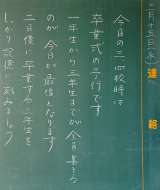 二月十五日(水)
連絡
今日の三四校時は
卒業式の予行です
一年生から三年生までが全員集まるのが今日が最後となります
二日後に卒業する三年生を
しっかり記憶に刻みましょう